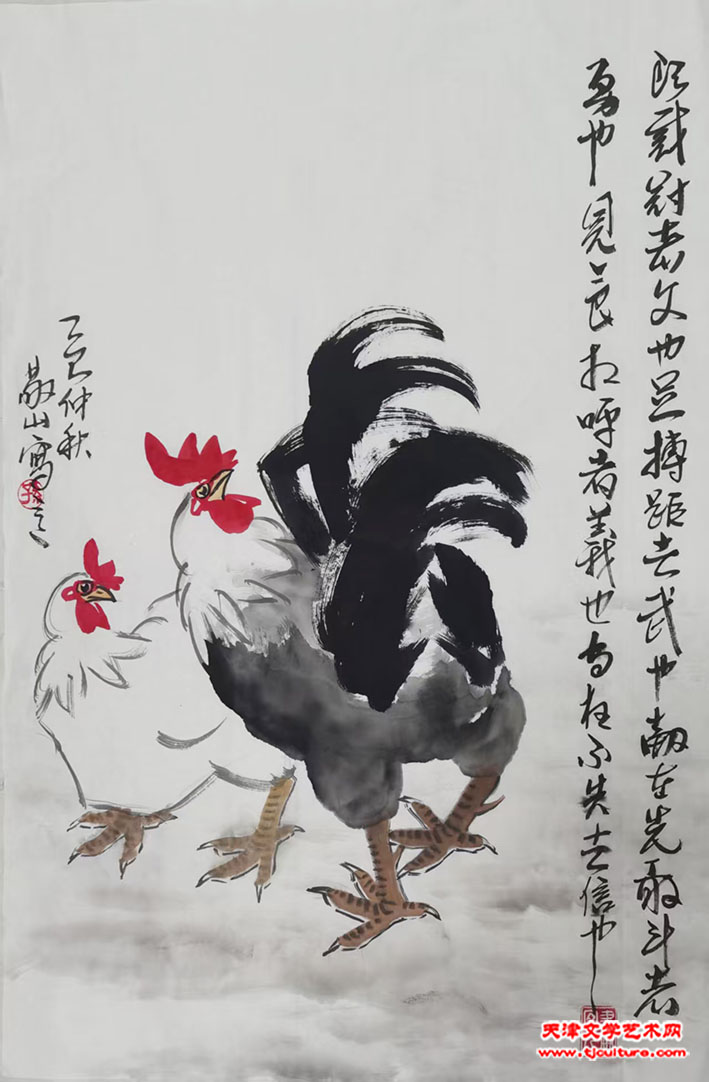 頭戴冠者文也足搏距者武也敵在先敢斗者
勇也見食相呼者義也守夜不失者信也
乙巳仲秋
敬山寫之
天津文学艺术网
www.tjculture.com